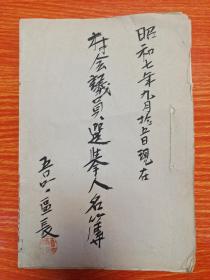 昭和七年九月拾五日現在
村会議員選挙人名簿
区長